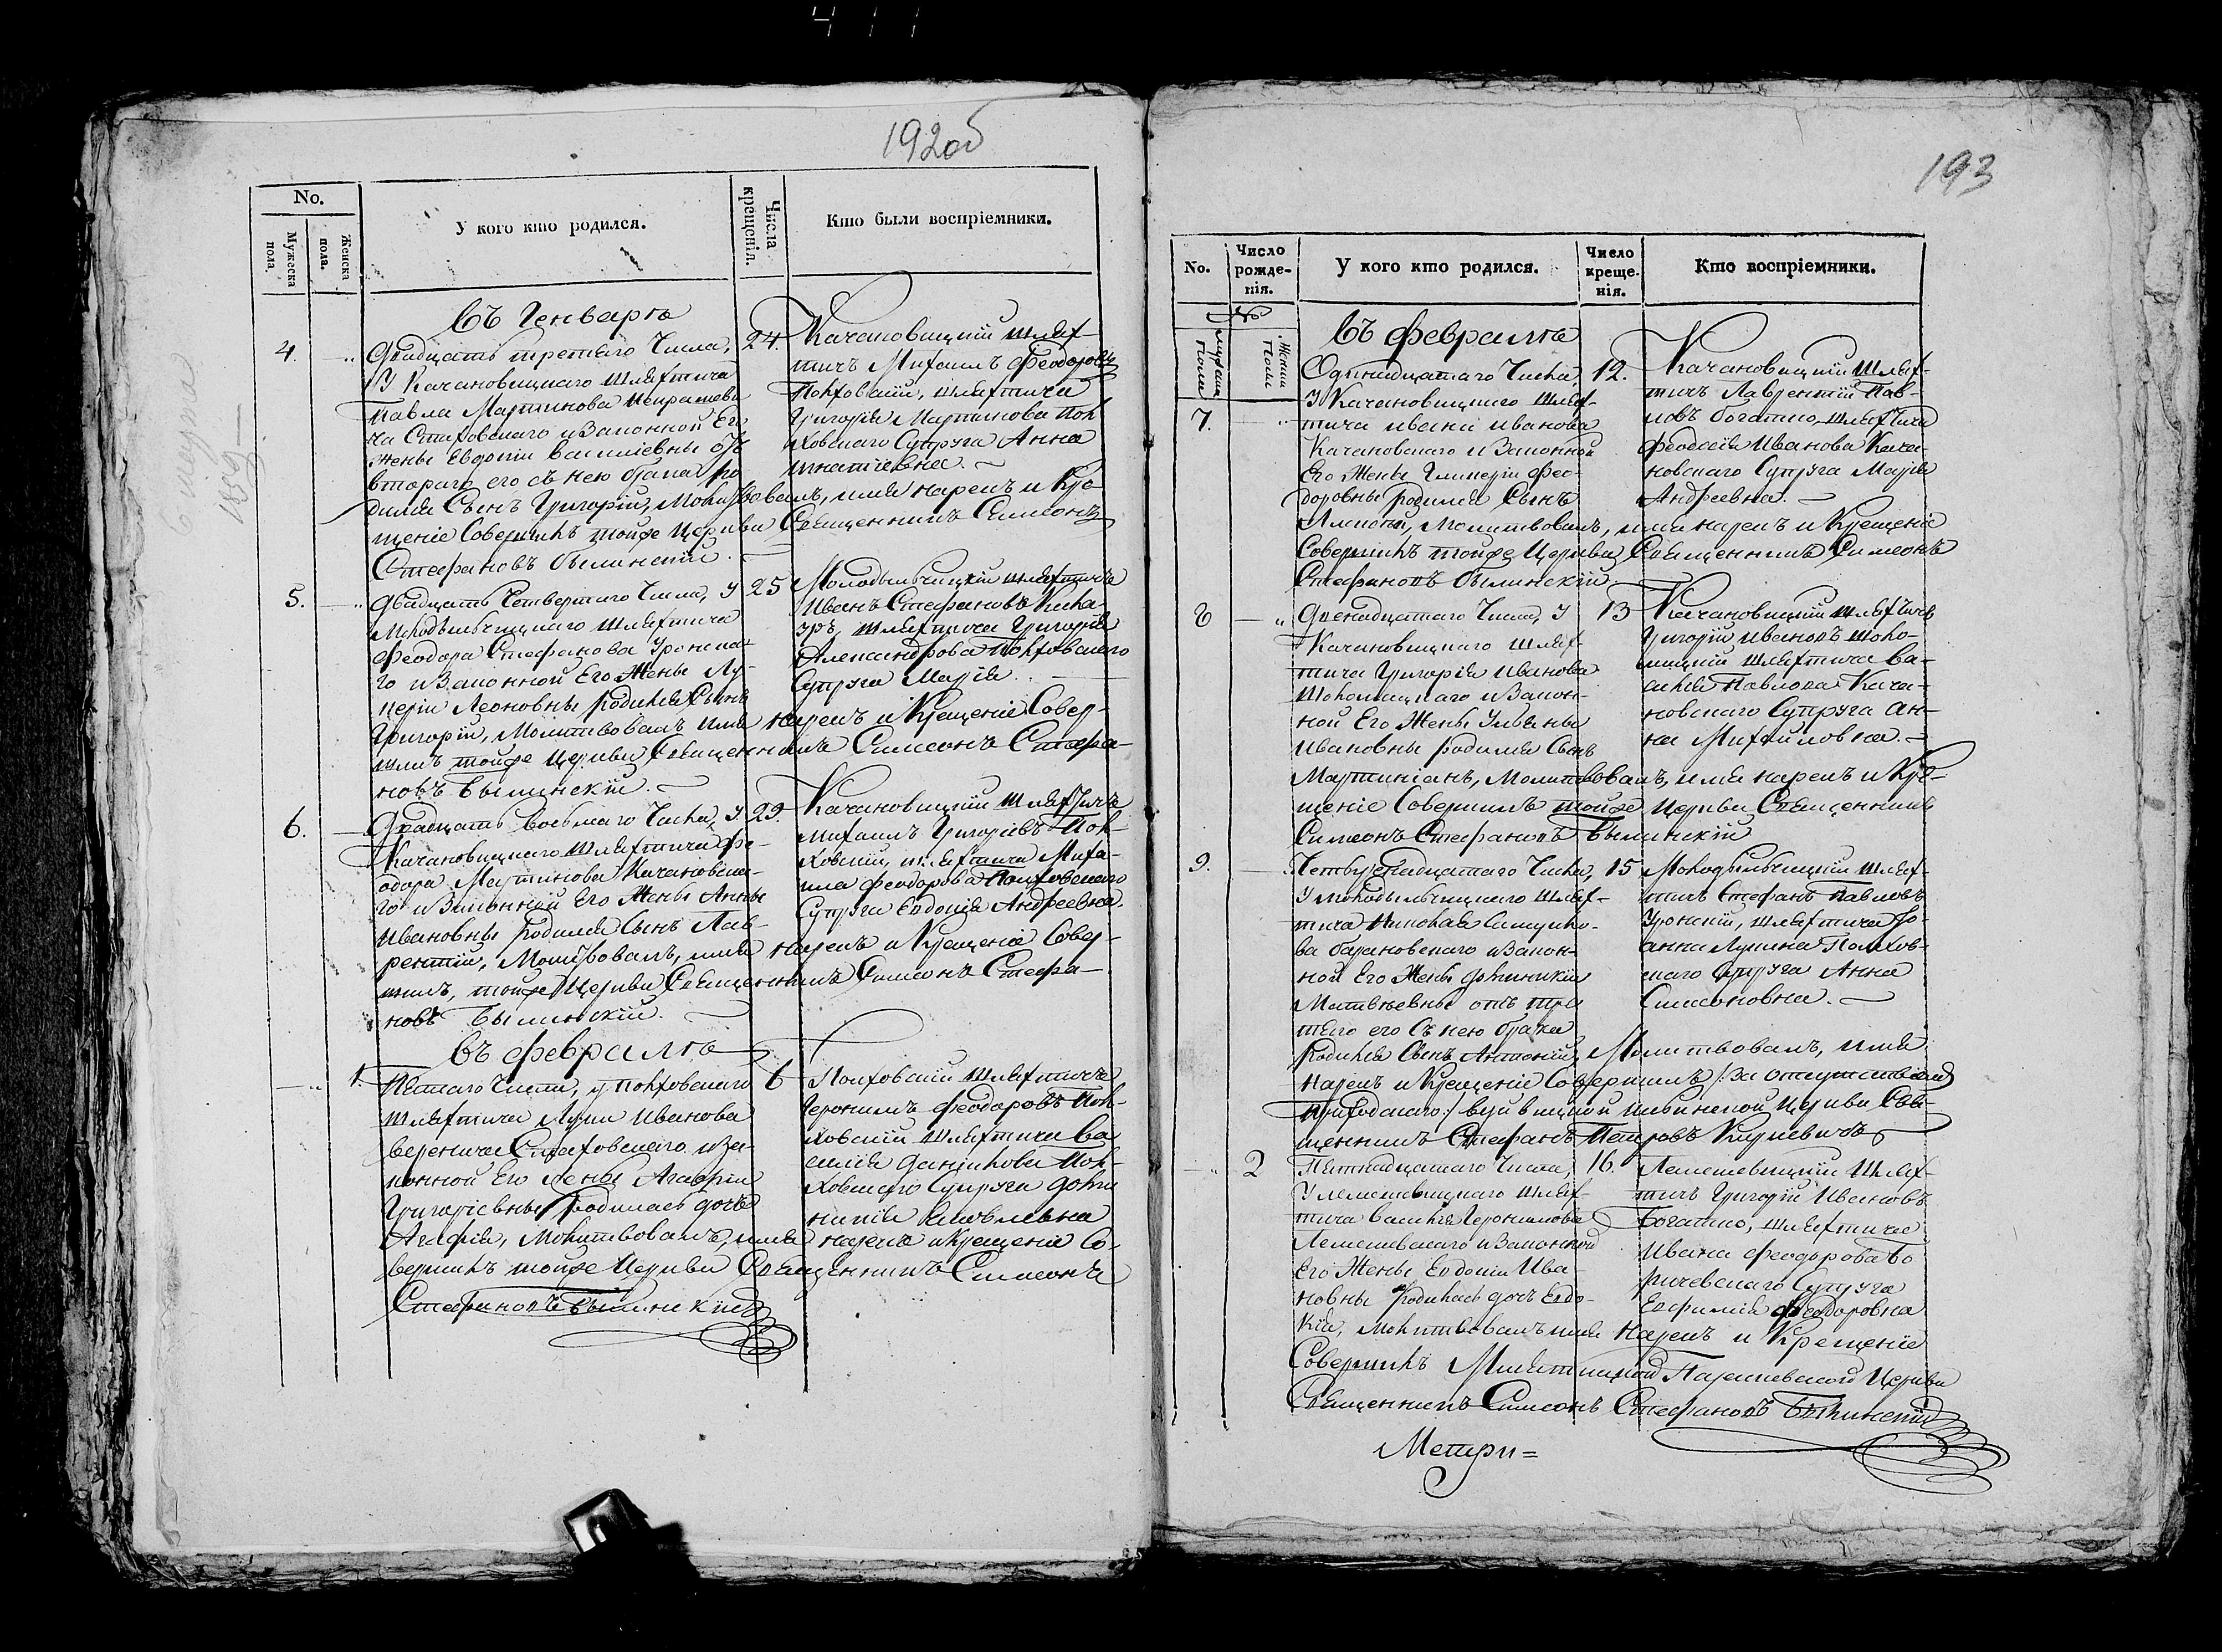 411
192об
No.
Мужеска пола.
Женска пола.
У кого кто родился.
Числа крещенія.
Кто были воспріемники.
Въ Генварѣ
4. Двадцать третяго Числа, 24.
У Качановицкаго Шляхтича
Павла Мартинова
Стаховскаго и Законной Его
Жены Евдокіи Василіевны отъ
втораго его съ нею брака ро-
дился Сынъ Григорій, Молитвовалъ, имя нарекъ и Кре-
щеніе Совершилъ тойже Церкви Священникъ Симеонъ
Стефановъ Былинскій.
Качановицкій Шлях-
тичъ Михаилъ Феодоровъ
Полховскій, Шляхтича
Григорія Мартинова Пол-
ховскаго Супруга Анна
Игнатіевна.
5. Двадцать Четвертаго Числа, У 25
Молодыльчицкаго Шляхтича
Феодора Стефанова Уронска-
го и Законной Его Жены Лу-
керіи Леоновны родился Сынъ
Григорій, Молитвовалъ имя нарекъ и Крещеніе Совер-
шилъ тойже Церкви Священникъ Симеонъ Стефа-
новъ Былинскій.
Молодыльчицкій Шляхтичъ
Иванъ Стефановъ
Шляхтича Григорія
Александрова Полховскаго
Супруга Марія.
6. Двадцать Восьмаго Числа, У 29.
Качановицкаго Шляхтича Фе-
одора Мартинова Качановска-
го и Законной Его Жены Анны
Ивановны родился Сынъ Лав-
рентій, Молитвовалъ, имя нарекъ и Крещеніе Совер-
шилъ, тойже Церкви Священникъ Симеонъ Стефа-
новъ Былинскій.
Качановицкій Шляхтичъ
Михаилъ Григоріевъ Пол-
ховскій, Шляхтича Миха-
ила Феодорова Полховскаго
Супруга Евдокія Андреевна.
Въ Февралѣ
1. Пятаго Числа, у Полховскаго 6
Шляхтича Луки Иванова
Стаховскаго и За-
конной Его Жены Агафіи
Григоріевны родилась дочь
Агафія, Молитвовалъ, имя нарекъ и Крещеніе Со-
вершилъ тойже Церкви Священникъ Симеонъ
Стефановъ Былинскій
Полховскій Шляхтичъ
Іеронимъ Феодоровъ Пол-
ховскій Шляхтича Ва
силія Данилова Пол-
ховскаго Супруга Доми
никія Яковлевна
193
No.
Число рожде-
нія.
У кого кто родился.
Число креще-
нія.
Кто воспріемники.
No
Мужска Полы
Женски Полы
Въ Февралѣ
7. Одинадцатаго Числа, 12.
У Качановицкаго Шлях-
тича Ивана Иванова
Качановскаго и Законной
Его Жены Гликеріи Фео-
доровны родился Сынъ
Молитвовалъ, имя нарекъ и Крещеніе
Совершилъ тойже Церкви Священникъ Симеонъ
Стефановъ Былинскій
Качановицкій Шлях-
тичъ Лаврентій Пав-
ловъ Богатко, Шляхтича
Феодосія Иванова Кача-
новскаго Супруга Марія
Андреевна.
8 Двенадцатаго Числа, У 13
Качановицкаго Шлях-
тича Григорія Иванова
Шоломицкаго и Закон-
ной Его Жены Ульяны
Ивановны родился Сынъ
Мартиніанъ, Молитвовалъ, имя нарекъ и Кре-
щеніе Совершилъ тойже Церкви Священникъ
Симеонъ Стефановъ Былинскій
Качановицкій Шляхтичъ
Григорій Ивановъ Шоло-
мицкій Шляхтича Ва-
силія Павлова Кача-
новскаго Супруга Ан-
на Михайловна.
9. Четвертнадцатаго Числа, 15
У Молодыльчицкаго Шлях-
тича Николая Самуило-
ва Барановскаго и Закон-
ной Его Жены Доминикіи
Матвѣевны отъ тре
тяго его съ нею брака
родился Сынъ Антоній, Молитвовалъ, имя
нарекъ и Крещеніе Совершилъ /:За отсутствіемъ
приходскаго:/ Церкви Свя-
щенникъ Стефанъ Петровъ
Молодыльчицкій Шлях-
тичъ Стефанъ Павловъ
Уронскій, Шляхтича Іо-
анна Лукина Полхов-
скаго Супруга Анна
Симеоновна.
2 Пятнадцатаго Числа, 16.
У Лемешевицкаго Шлях-
тича Василія Іеронимова
Лемешевскаго и Законной
Его Жены Евдокіи Ива
новны родилась дочь Евдо-
кія, Молитвовалъ имя нарекъ и Крещеніе
Совершилъ Церкви
Священникъ Симеонъ Стефановъ Былинскій
Лемешевицкій Шлях-
тичъ Григорій Ивановъ
Богатко, Шляхтича
Ивана Феодорова Бо
ричевскаго Супруга
Евфимія Феодоровна
Метри=